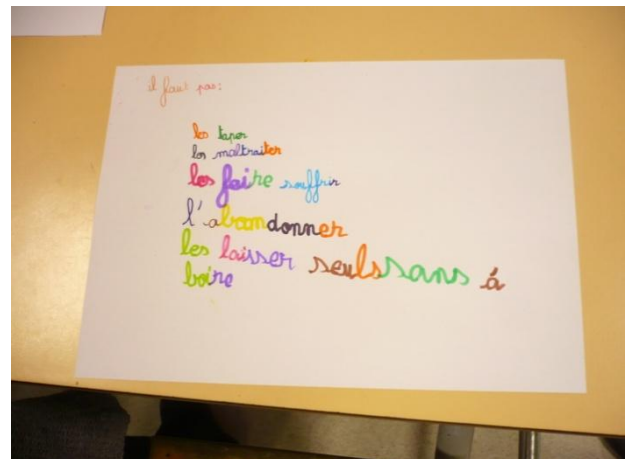 il faut pas:
les taper
les maltraiter
les faire souffrir
l'abandonner
les laisser seuls sans à
boire